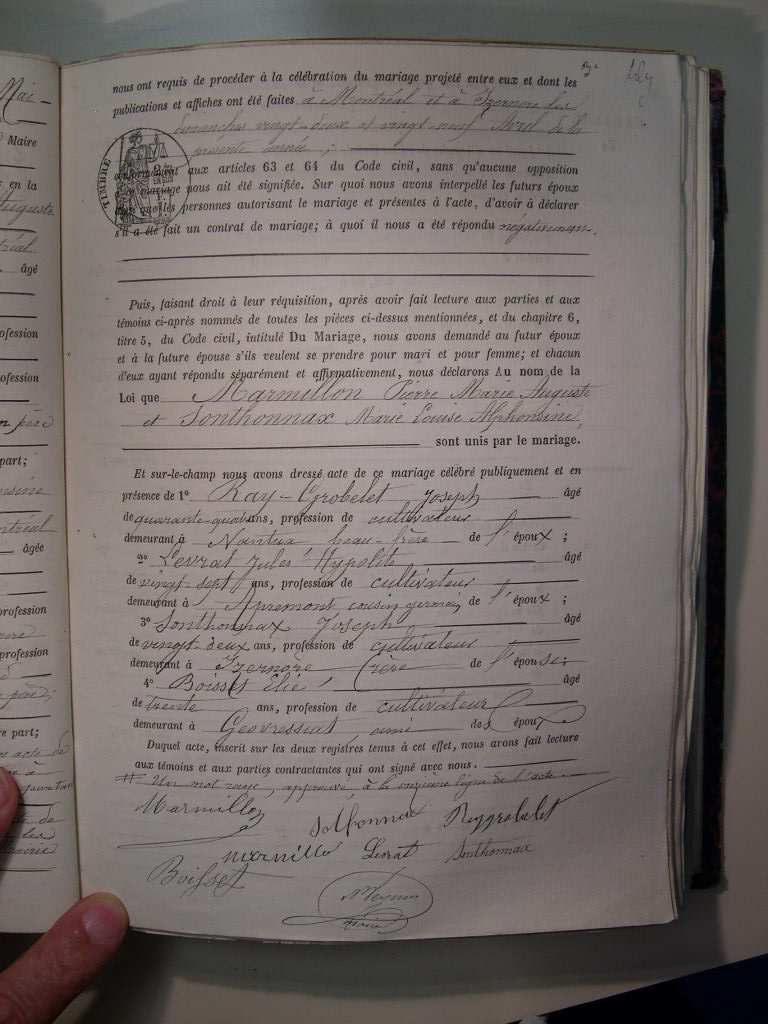 Mai -
Maire
en la
âgé
rofession
rofession
père
part;
âgée
profession
profession
re part;
nous ont requis de procéder à la célébration du mariage projeté entre eux et dont les
publications et affiches ont été faites à Montréal et à Izernore les
dimanches vingt-deux et vingt-neuf Avril de la
présente année,
TIMBRE
conformément aux articles 63 et 64 du Code civil, sans qu'aucune opposition
mariage nous ait été signifiée. Sur quoi nous avons interpellé les futurs époux
que les personnes autorisant le mariage et présentes à l'acte, d'avoir à déclarer
s'il a été fait un contrat de mariage; à quoi il nous a été répondu négativement.
Puis, faisant droit à leur réquisition, après avoir fait lecture aux parties et aux
témoins ci-après nommés de toutes les pièces ci-dessus mentionnées, et du chapitre 6,
titre 5, du Code civil, intitulé Du Mariage, nous avons demandé au futur époux
et à la future épouse s'ils veulent se prendre pour mari et pour femme; et chacun
d'eux ayant répondu séparément et affirmativement, nous déclarons Au nom de la
Loi que Marmillon Pierre Marie Auguste
et Sonthonnax Marie Louise Alphonsine,
sont unis par le mariage.
Et sur-le-champ nous avons dressé acte de ce mariage célébré publiquement et en
présence de 1° Ray-Grobelet Joseph âgé
de quarante-quatre ans, profession de cultivateur
demeurant à Nantua beau-frère de l'époux;
2° Levrat Jules Hypolite âgé
de vingt-sept ans, profession de cultivateur
demeurant à Apremont cousin germain de l'époux;
3° Sonthonnax Joseph, âgé
de vingt-deux ans, profession de cultivateur
demeurant à Izernore frère de l'épouse;
4° Boisset Elie, âgé
de trente ans, profession de cultivateur
demeurant à Géovressiat, ami des époux
Duquel acte, inscrit sur les deux registres tenus à cet effet, nous avons fait lecture
aux témoins et aux parties contractantes qui ont signé avec nous.
Un mot rayé, approuvé, à la onzième ligne de l'acte.
Marmillon Sonthonnax Reygrobelet
Marmillon Levrat Sonthonnax
Boisset